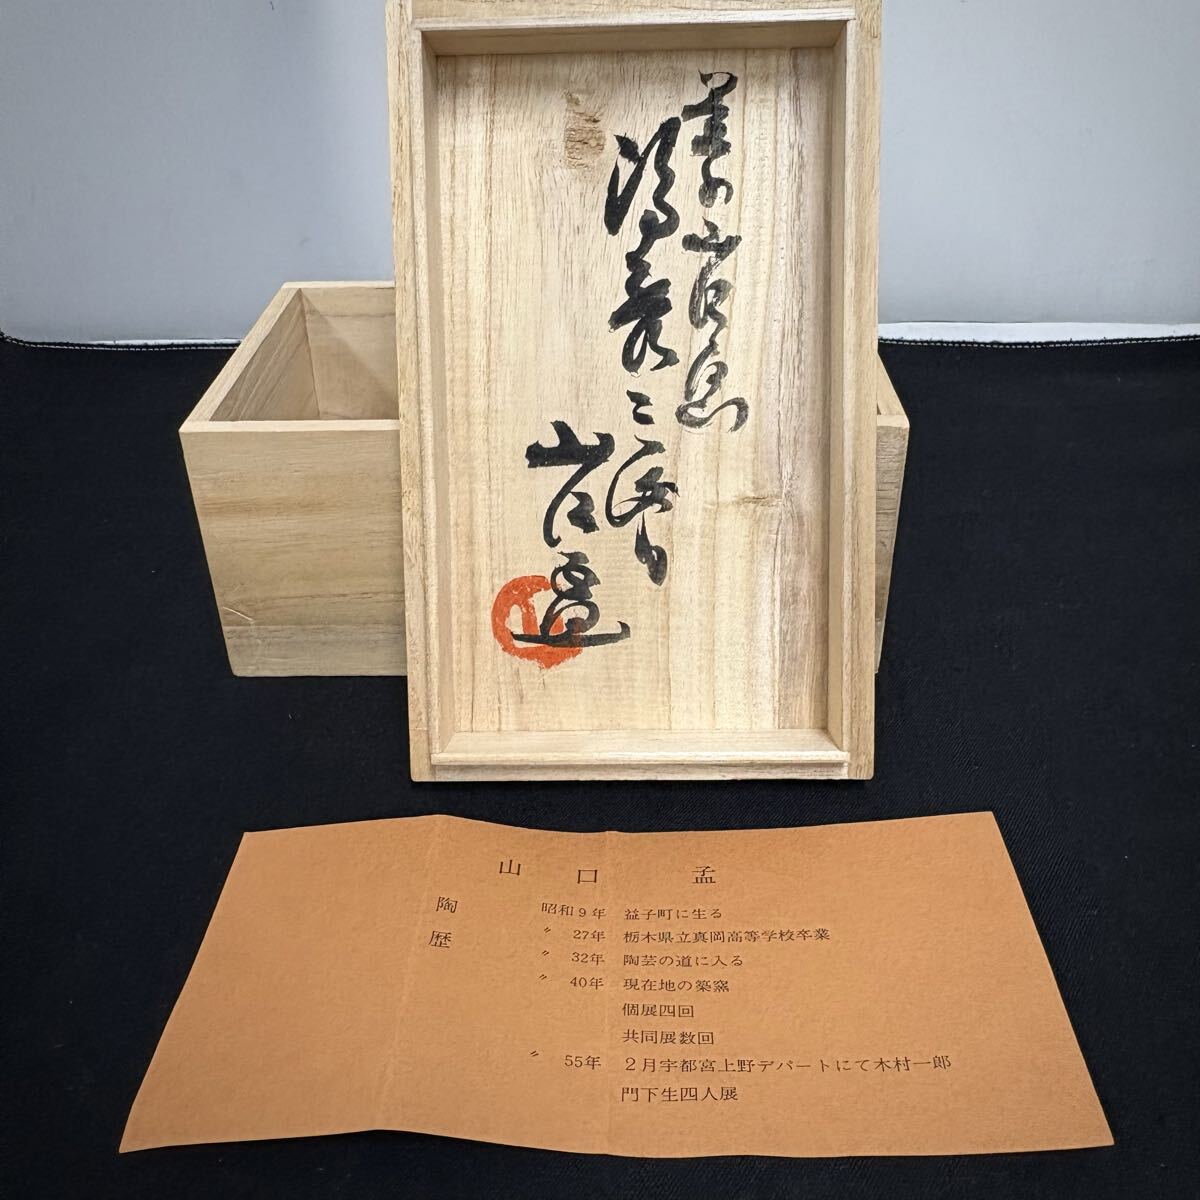 山口
山口 孟
陶歴
昭和9年 益子町に生る
〃 27年 栃木県立真岡高等学校卒業
〃 32年 陶芸の道に入る
〃 40年 現在地の築窯
個展四回
共同展数回
〃 55年 2月宇都宮上野デパートにて木村一郎
門下生四人展